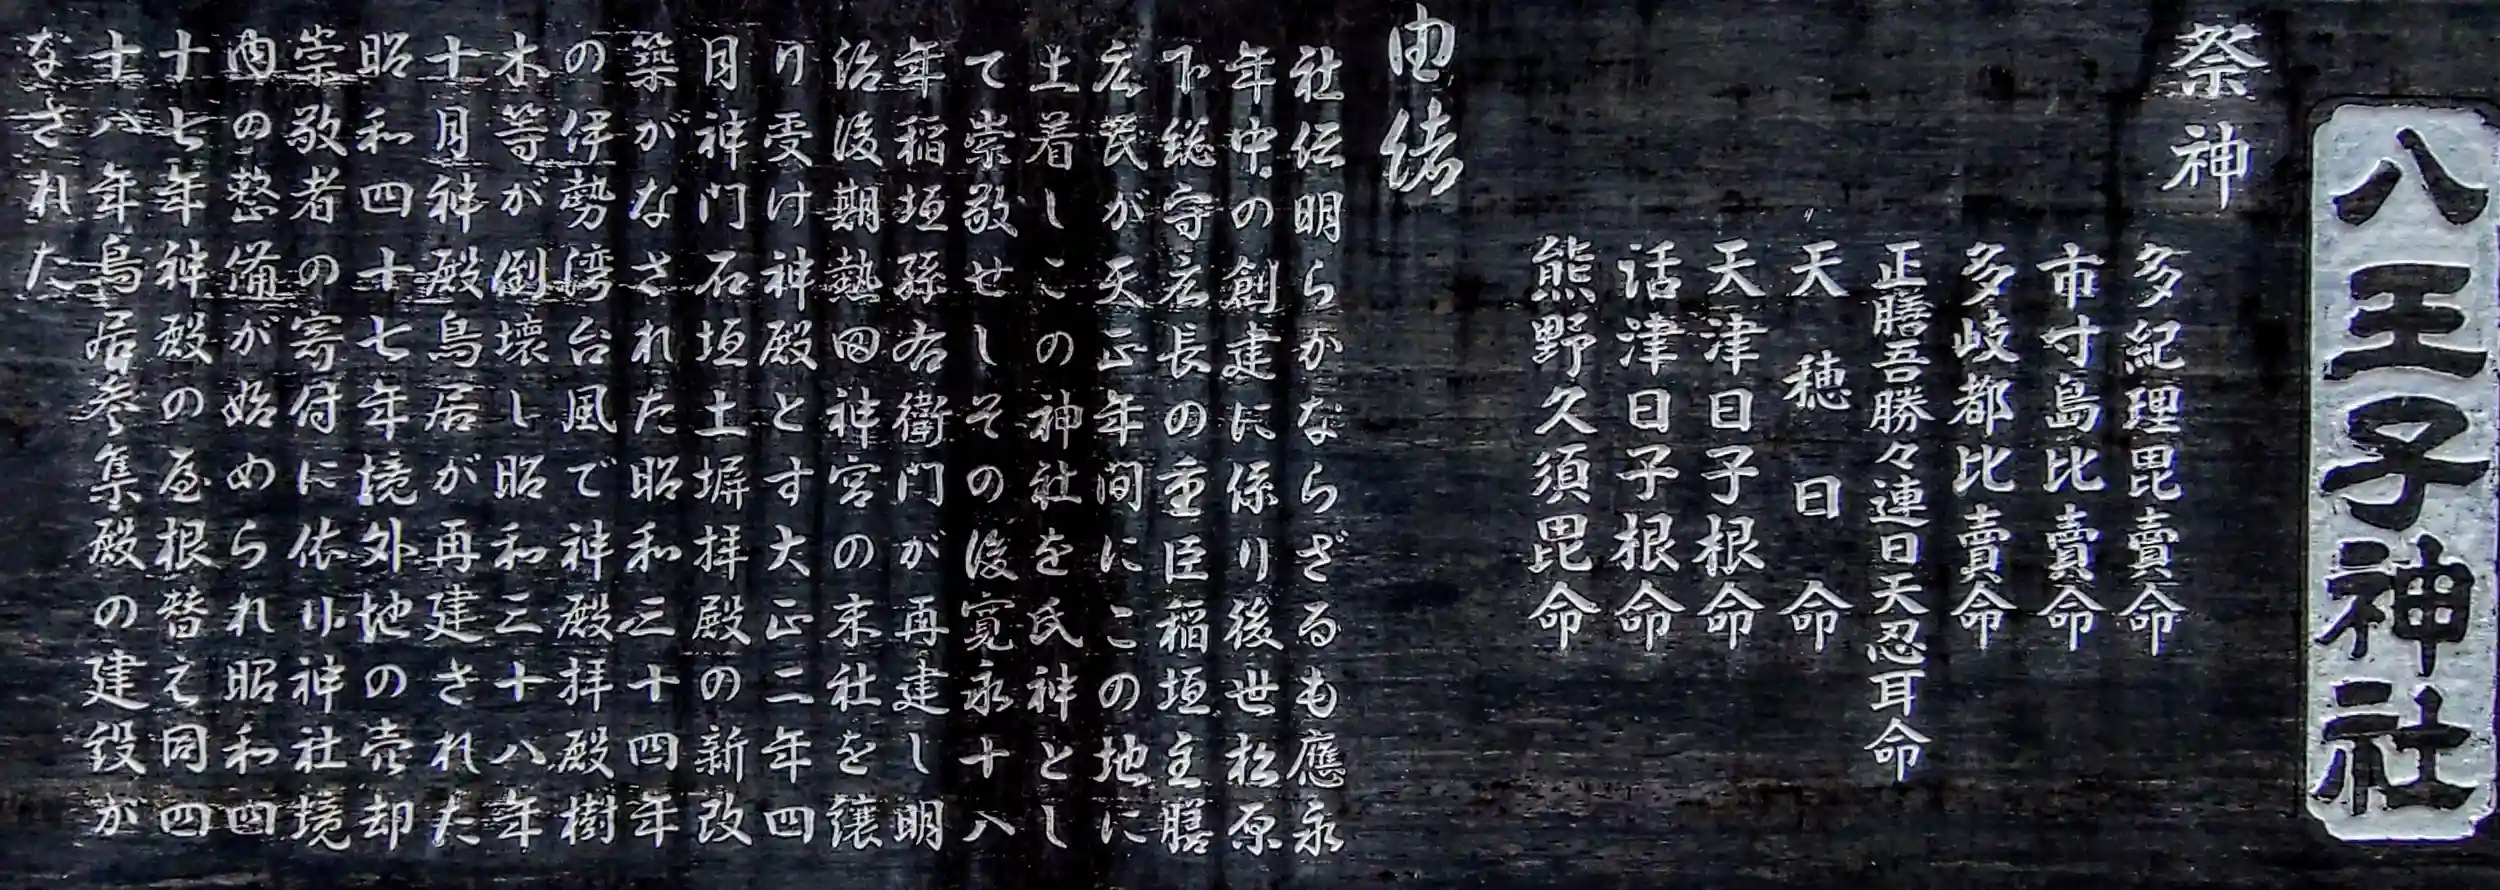 八王子神社
祭神
多紀理毘賣命
市寸島比賣命
多岐都比賣命
正膳吾勝々連日天忍耳命
天穂日命
天津日子根命
活津日子根命
熊野久須毘命
由緒
社伝明らかならざるも應永
年中の創建に係り後世松原
下総守宏長の重臣稲垣主膳
宏民が天正年間にこの地に
土着しこの神社を氏神とし
て崇敬せしその後寛永十八
年稲垣孫右衛門が再建し明
治後期熱田神宮の末社を譲
り受け神殿とす大正二年四
月神門石垣土塀拝殿の新改
築がなされた昭和三十四年
の伊勢湾台風で神殿拝殿樹
木等が倒壊し昭和三十八年
十月神殿鳥居が再建された
昭和四十七年境外地の売却
崇敬者の寄付に依り神社境
内の整備が始められ昭和四
十七年神殿の屋根替え同四
十八年鳥居参集殿の建設が
なされた